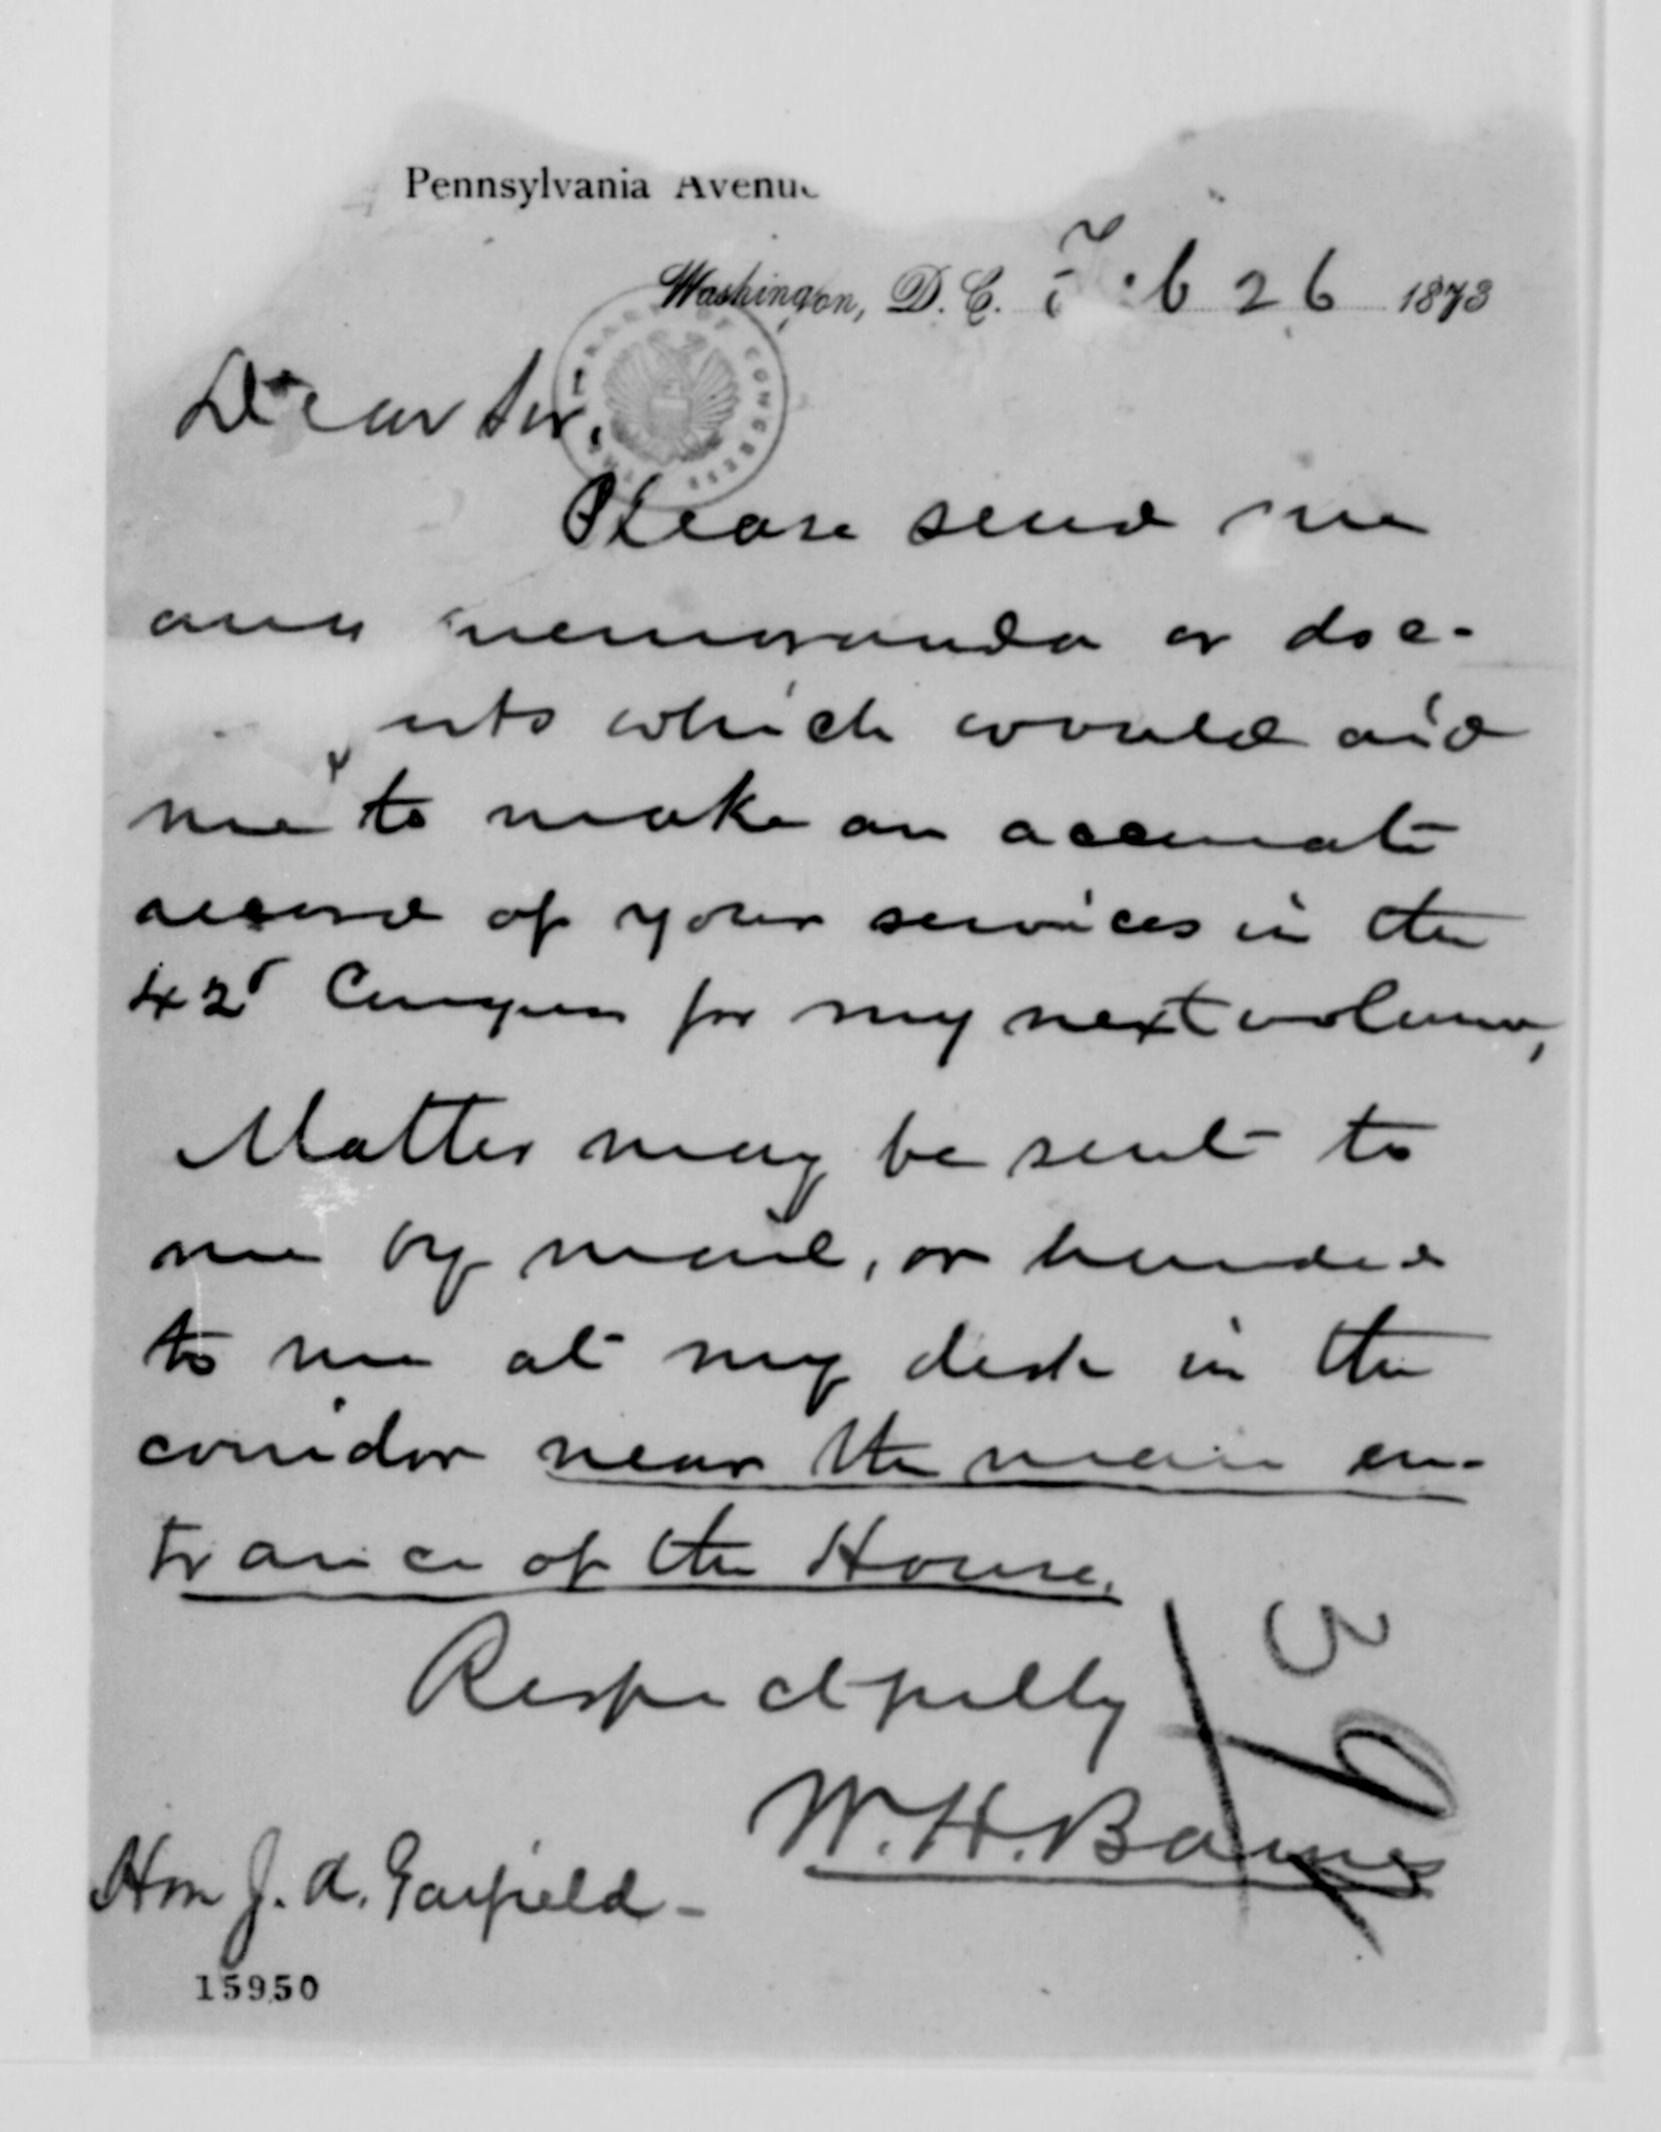 Pennsylvania Avenue
Washington, D. C. Feb 26 1873
LIBRARY OF CONGRESS
Dear Sir,
Please send me
any memoranda or doc-
nts which would aid
me to make an accurate
record of your services in the
42d Congress for my next volume,
Matter may be sent to
me by mail, or handed
to me at my desk in the
corridor near the main en-
trance of the House.
Respectfully
W. H. Barnes
Hon J. A. Garfield -
15950